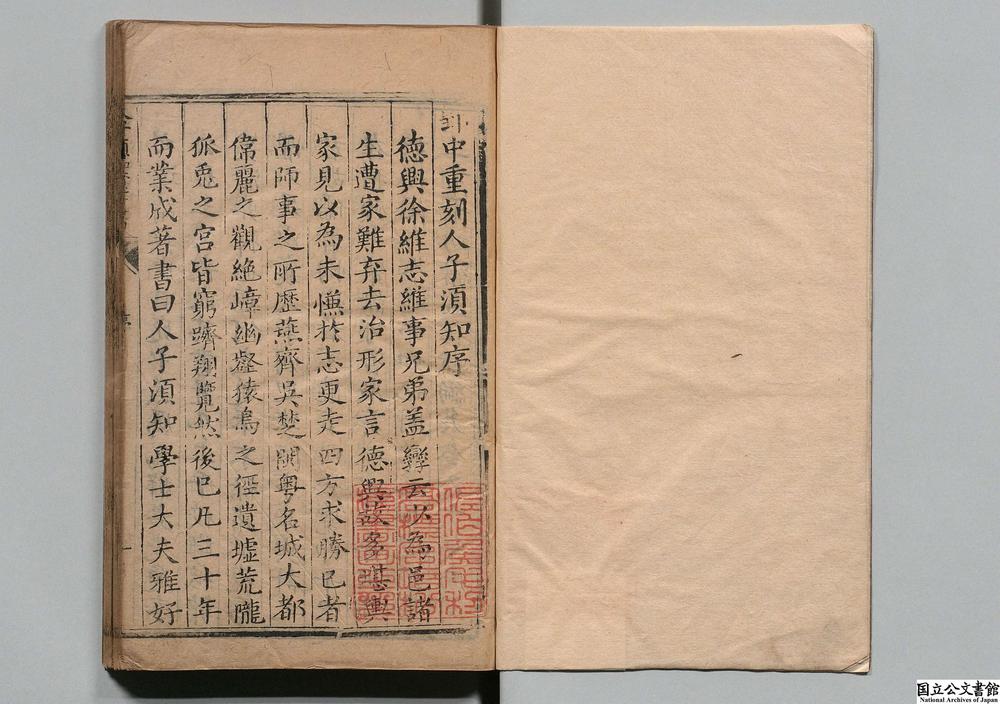 中重刻人子須知序
德興徐維志維事兄弟盖孿云以為邑諸
生遭家難弃去治形家言德興故多堪輿
家見以為未慊於志更走四方求勝已者
而師事之所歷燕齊吳楚閩粤名城大都
偉麗之觀絶嶂幽壑猿鳥之徑遺墟荒隴
狐兎之宮皆窮躋翔覽然後已凡三十年
而業成著書曰人子須知學士大夫雅好
一
国立公文書館
National Archives of Japan